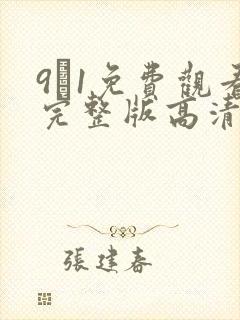 91免費觀看
完整版高清
張建春